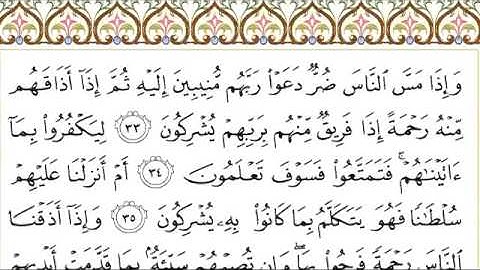 وَإِذَا مَسَّ النَّاسَ ضُرٌّ دَعَوْا۟ رَبَّهُم مُّنِيبِينَ إِلَيْهِ ثُمَّ إِذَآ أَذَاقَهُم
مِّنْهُ رَحْمَةً إِذَا فَرِيقٌ مِّنْهُم بِرَبِّهِمْ يُشْرِكُونَ ٣٣ لِيَكْفُرُوا۟ بِمَآ
ءَاتَيْنَٰهُمْ ۚ فَتَمَتَّعُوا۟ فَسَوْفَ تَعْلَمُونَ ٣٤ أَمْ أَنزَلْنَا عَلَيْهِمْ
سُلْطَٰنًا فَهُوَ يَتَكَلَّمُ بِمَا كَانُوا۟ بِهِۦ يُشْرِكُونَ ٣٥ وَإِذَآ أَذَقْنَا
النَّاسَ رَحْمَةً فَرِحُوا۟ بِهَا ۖ وَإِن تُصِبْهُمْ سَيِّئَةٌۢ بِمَا قَدَّمَتْ أَيْدِيهِمْ